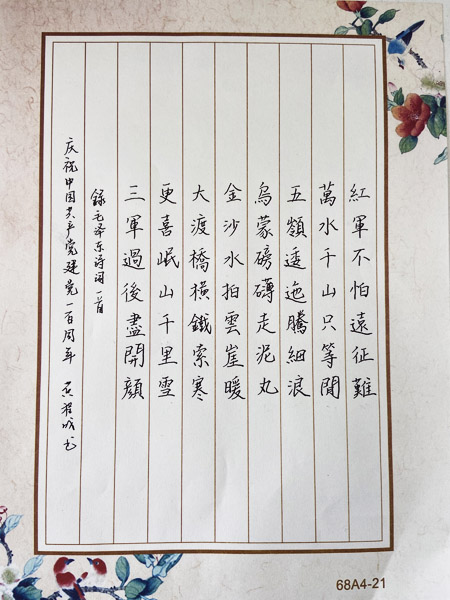 紅軍不怕遠征難
萬水千山只等閒
五嶺逶迤騰細浪
烏蒙磅礴走泥丸
金沙水拍雲崖暖
大渡橋橫鐵索寒
更喜岷山千里雪
三軍過後盡開顏
錄毛泽东诗词一首
庆祝中国共产党建党一百周年 城书
68A4-21